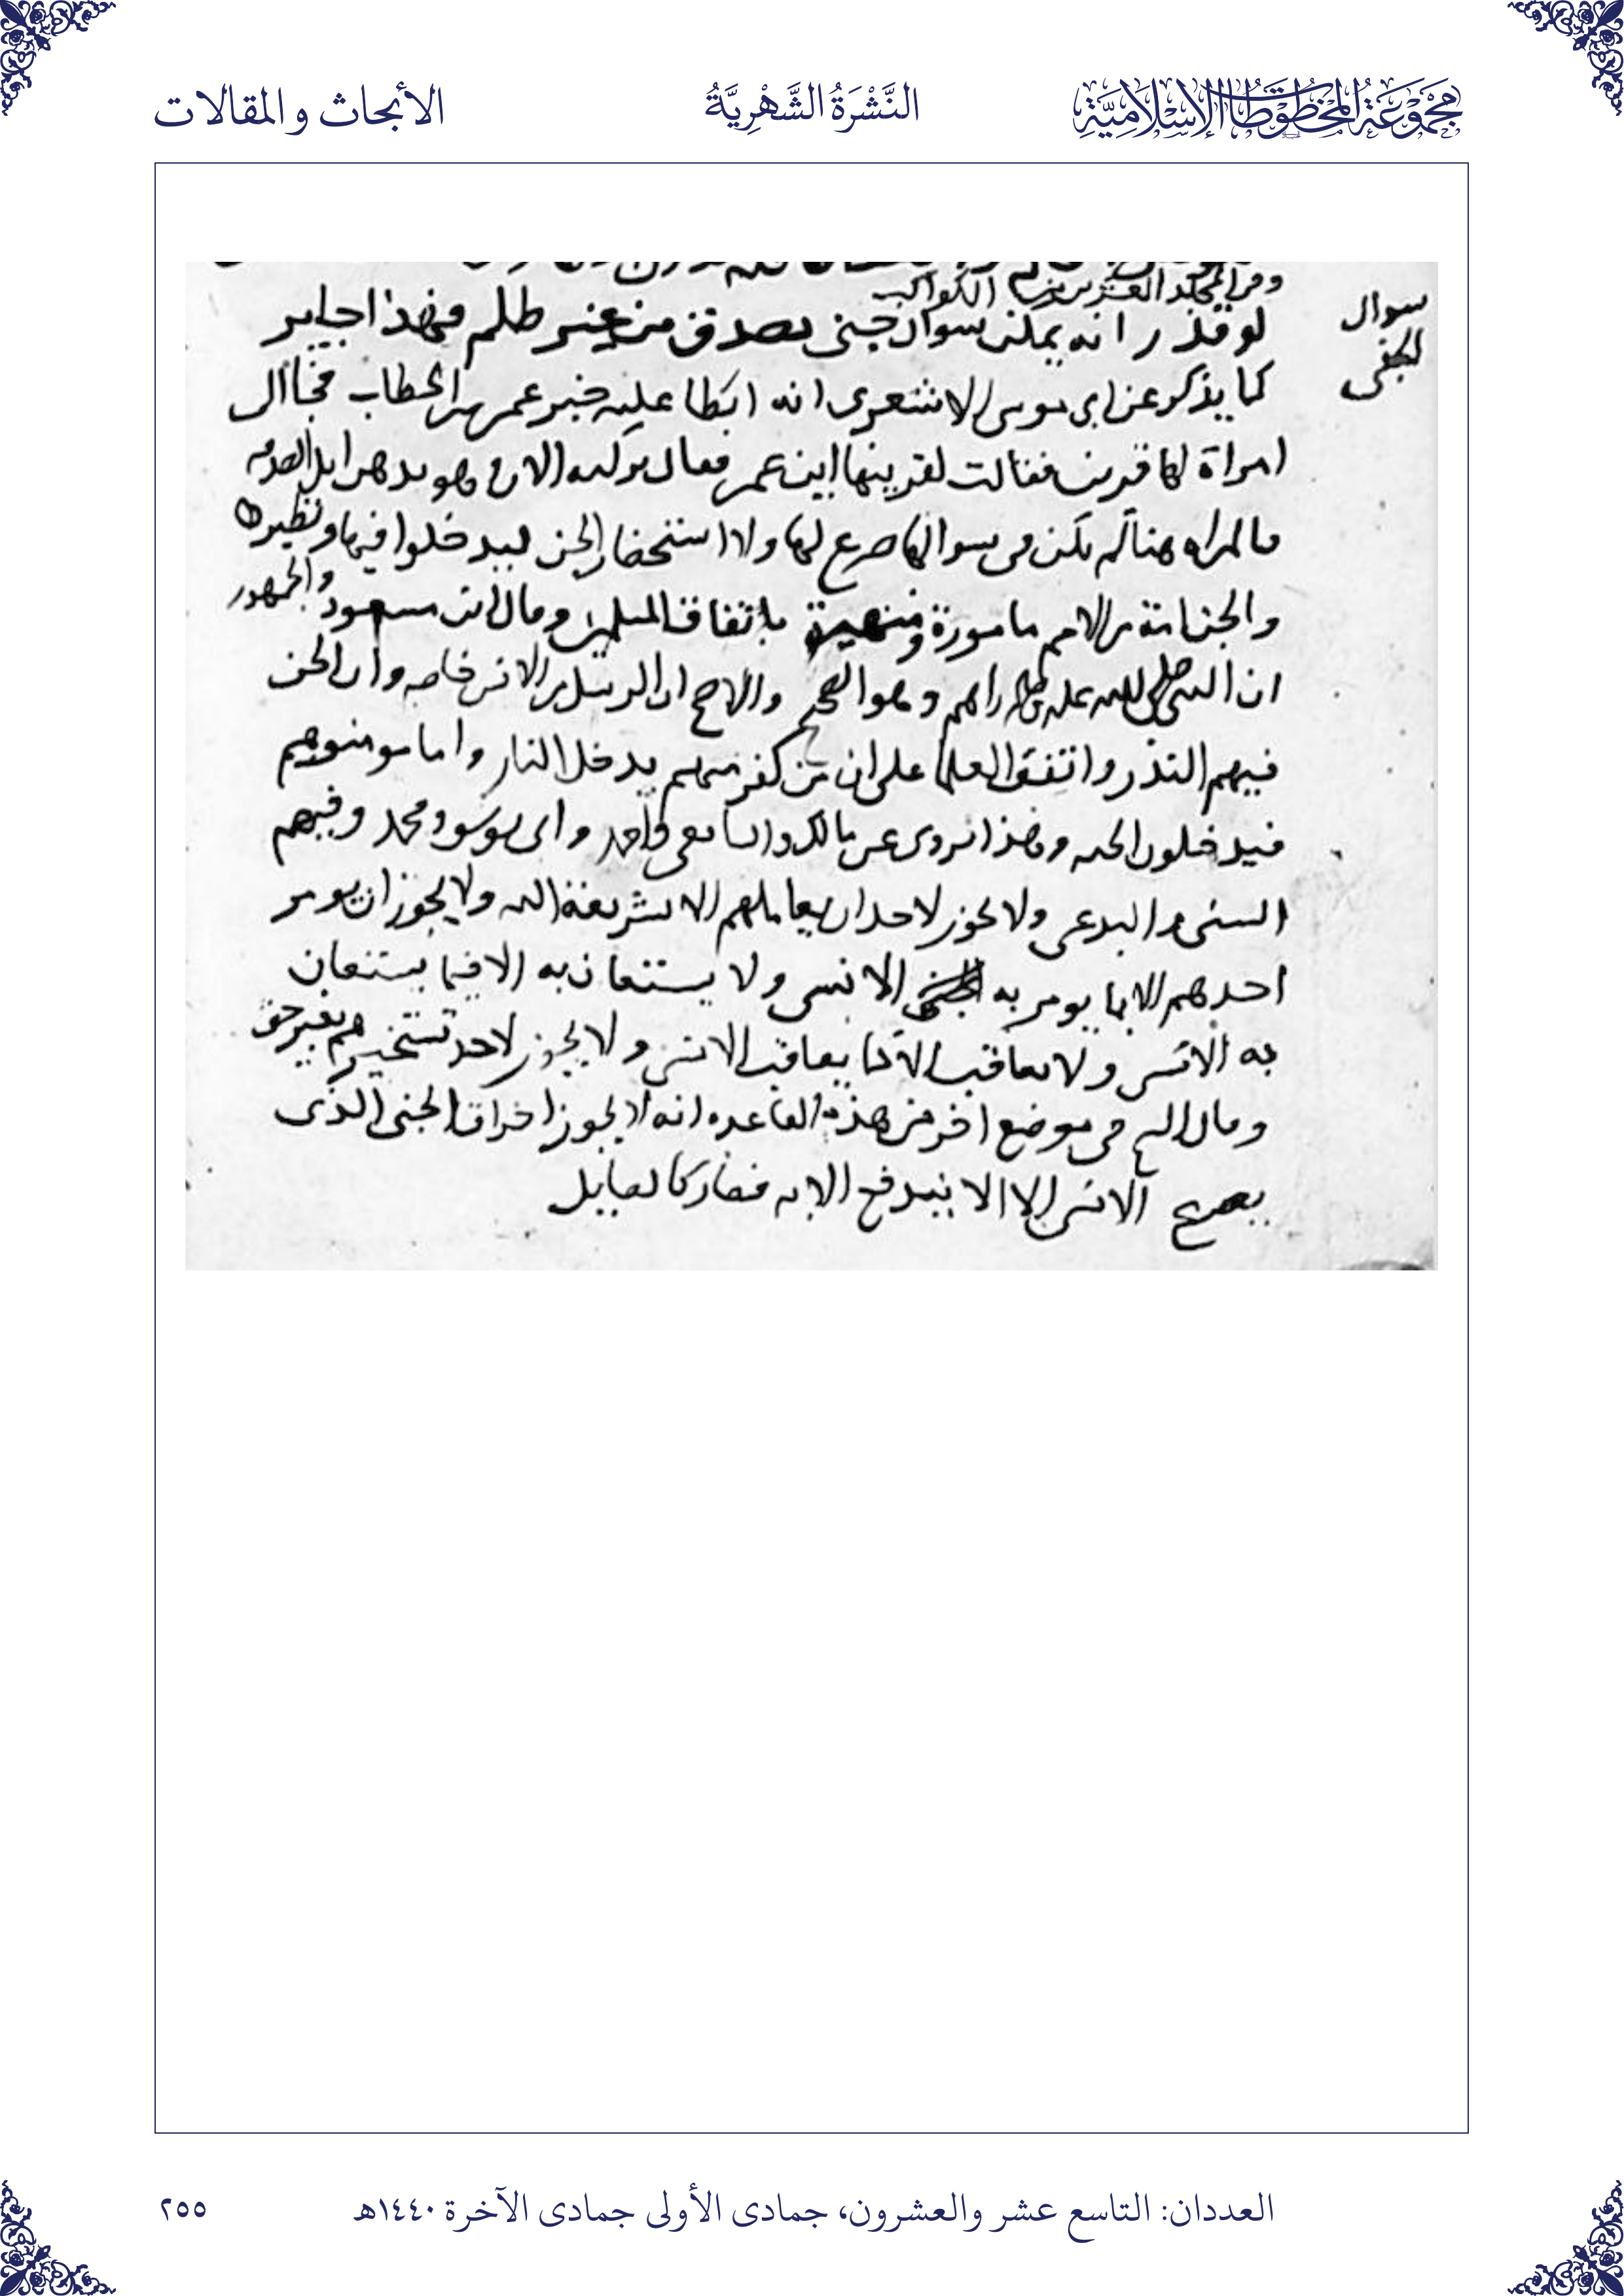 مجموعة المخطوطات الإسلامية
النَّشْرَةُ الشَّهْرِيَّةُ
الأبحاث والمقالات
ومن المجلد العشرين من الكواكب
سوال
الجني
لو قدر انه يمكن سوال جني يصدق من غير ظلم فهذا جايز
كما يذكر عن ابي موسى الاشعري انه ابطا عليه خبر عمر بن الخطاب فجا الى
امراة لها قرين فقالت لقرينها اين عمر فقال تركته الان وهو يدهن ابل الصدقه
فالمراه هنا لم يكن في سوالها صرع لها ولا استحضار الجن ليدخلوا فيها ونظيره
والجن امة من الامم مامورة ومنهية باتفاق المسلمين وقال ابن مسعود والجمهور
ان النبي صلى الله عليه وسلم راهم وهو الصحيح والاصح ان الرسل من الانس خاصه وان الجن
فيهم النذر واتفق العلما على ان من كفر منهم يدخل النار واما مومنوهم
فيدخلون الجنه وهذا مروي عن مالك والشافعي واحمد وابي يوسف ومحمد وفيهم
السني والبدعي ولا يجوز لاحد ان يعاملهم الا بشريعة الله ولا يجوز ان يومر
احدهم الا بما يومر به الانسي ولا يستعان به الا فيما يستعان
به الانس ولا يعاقب الا كما يعاقب الانس ولا يجوز لاحد تسخيرهم بغير حق
وقال الشيخ في موضع اخر من هذه القاعده انه لا يجوز احراق الجني الذي
يصرع الانس الا ان لا يندفع الا به فصار كالصايل
العددان: التاسع عشر والعشرون، جمادى الأولى جمادى الآخرة ١٤٤٠هـ
٢٥٥